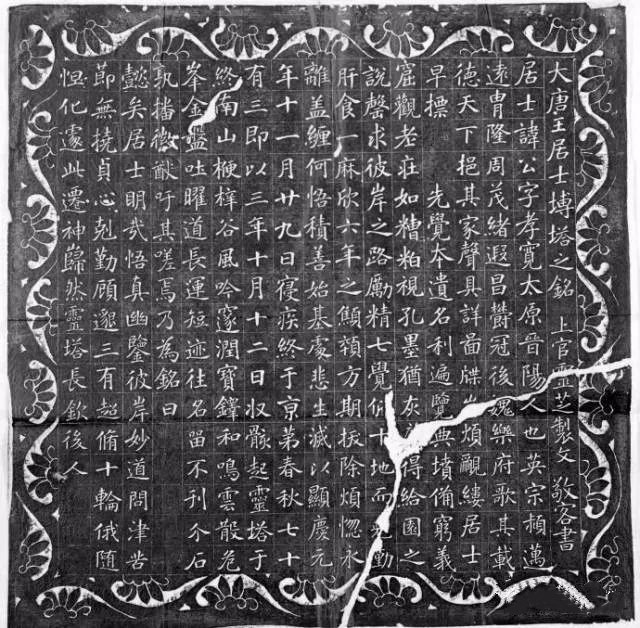 大唐王居士塼塔之銘 上官靈芝製文 敬客書
居士諱公字孝寬太原晉陽人也英宗穎邁
遠胄隆周茂緒遐昌欝冠後魏樂府歌其載
德天下挹其家聲具詳啚牒 煩覼縷居士
早摽 先覺夲遺名利遍覽典墳備窮義
窟觀老莊如糟粕視孔墨猶灰 得給園之
說罄求彼岸之路勵精七覺仰十地而克勤
肝食一麻欣六年之顦顇方期拔除煩惚永
離盖纏何悟積善始基處悲生滅以顯慶元
年十一月廿九日寑疾終于京第春秋七十
有三即以三年十月十二日収骸起靈塔于
終南山楩梓谷風吟邃澗寶鐸和鳴雲散危
峯金盤吐曜道長運短迹往名留不刊介石
孰播徽猷吁其嗟焉乃為銘曰
懿矣居士明哉悟真幽鑒彼岸妙道問津苦
節無撓貞心剋勤顧邈三有超脩十輪俄隨
怛化遽此遷神巋然靈塔長欽後人